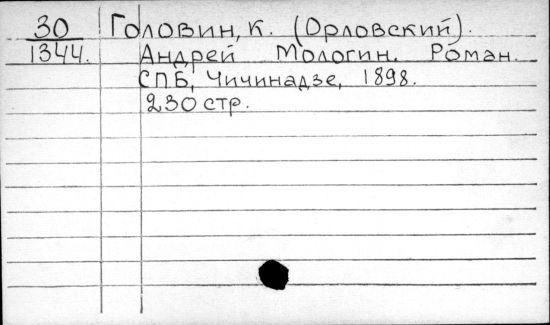 30 Головин, К. (Орловский).
1344. Андрей Мологин. Роман.
СПБ, Чичинадзе, 1898.
230 стр.